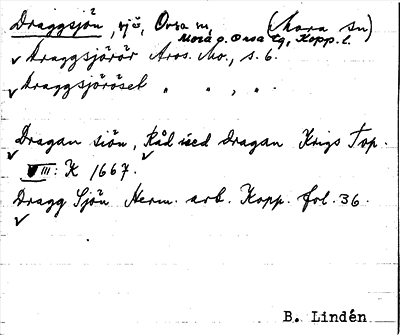 Draggsjön, sjö, Orsa sn, (Mora sn)
Mora o. Orsa tg, Kopp. l.
draggsjörör Aros. Mo., s. 6.
draggsjöröset " " , " .
Dragan siön, Råd ved dragan Krigs Top.
VIII: K 1667.
Dragg Sjön Herm. arb. Kopp. fol. 36.
B. Lindén